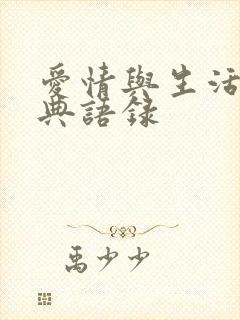 愛情與生活
典語錄
禹少少